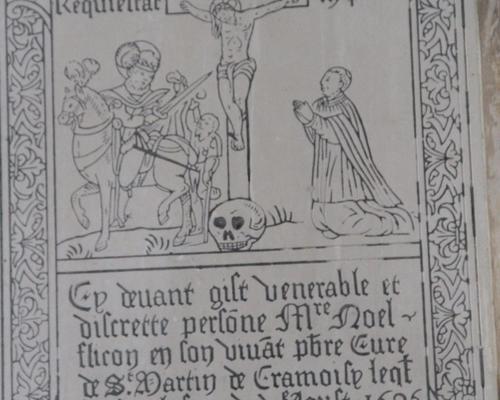 Requiescat
Cy devant gist venerable et
discrette persōne Mre Noel
flicon en son vivāt pbre Cure
de St Martin de Cramoisy leql
Aoust 1626